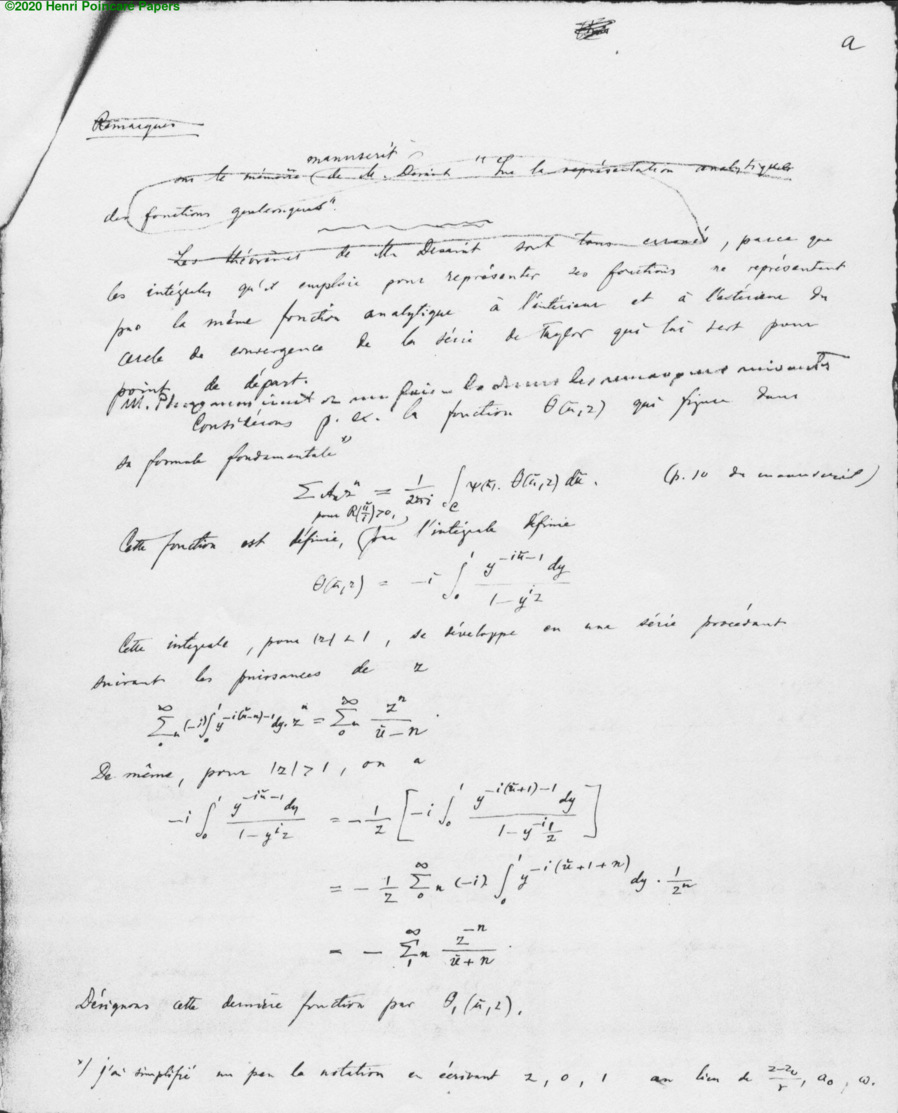 ©2020 Henri Poincaré Papers
a
Remarques
manuscrit
sur le mémoire de M. Desaint "Sur la représentation analytique
des fonctions quelconques".
Les théorèmes de Mr Desaint sont tous erronés, parce que
les intégrales qu'il emploie pour représenter ses fonctions ne représentent
pas la même fonction analytique à l'intérieur et à l'extérieur du
cercle de convergence de la série de Taylor qui lui sert pour
point de départ.
M. les remarques suivantes
Considérons p. ex. la fonction θ(ü,z) qui figure dans
sa formule fondamentale *)
Σ Aₙzⁿ = 1/2πi ∫_C ψ(ü). θ(ü,z) dü. (p. 10 du manuscrit)
pour R(ü/i)>0,
Cette fonction est définie, par l'intégrale définie
θ(ü,z) = -i ∫₀¹ y^{-iü-1} dy / (1-y^i z)
Cette intégrale, pour |z|<1, se développe en une série procédant
suivant les puissances de z
Σ₀^∞ n (-i)∫₀¹ y^{-i(ü-n)-1} dy. zⁿ = Σ₀^∞ n zⁿ/(ü-n).
De même, pour |z|>1, on a
-i ∫₀¹ y^{-iü-1} dy / (1-y^i z) = -1/z [-i ∫₀¹ y^{-i(ü+1)-1} dy / (1-y^{-i} 1/z)]
= - 1/z Σ₀^∞ n (-i) ∫₀¹ y^{-i(ü+1+n)} dy . 1/zⁿ
= - Σ₁^∞ n z^{-n}/(ü+n).
Désignons cette dernière fonction par θ₁(ü,z).
*) j'ai simplifié un peu la notation en écrivant z, 0, 1 au lieu de (z-z₀)/r, a₀, ω.